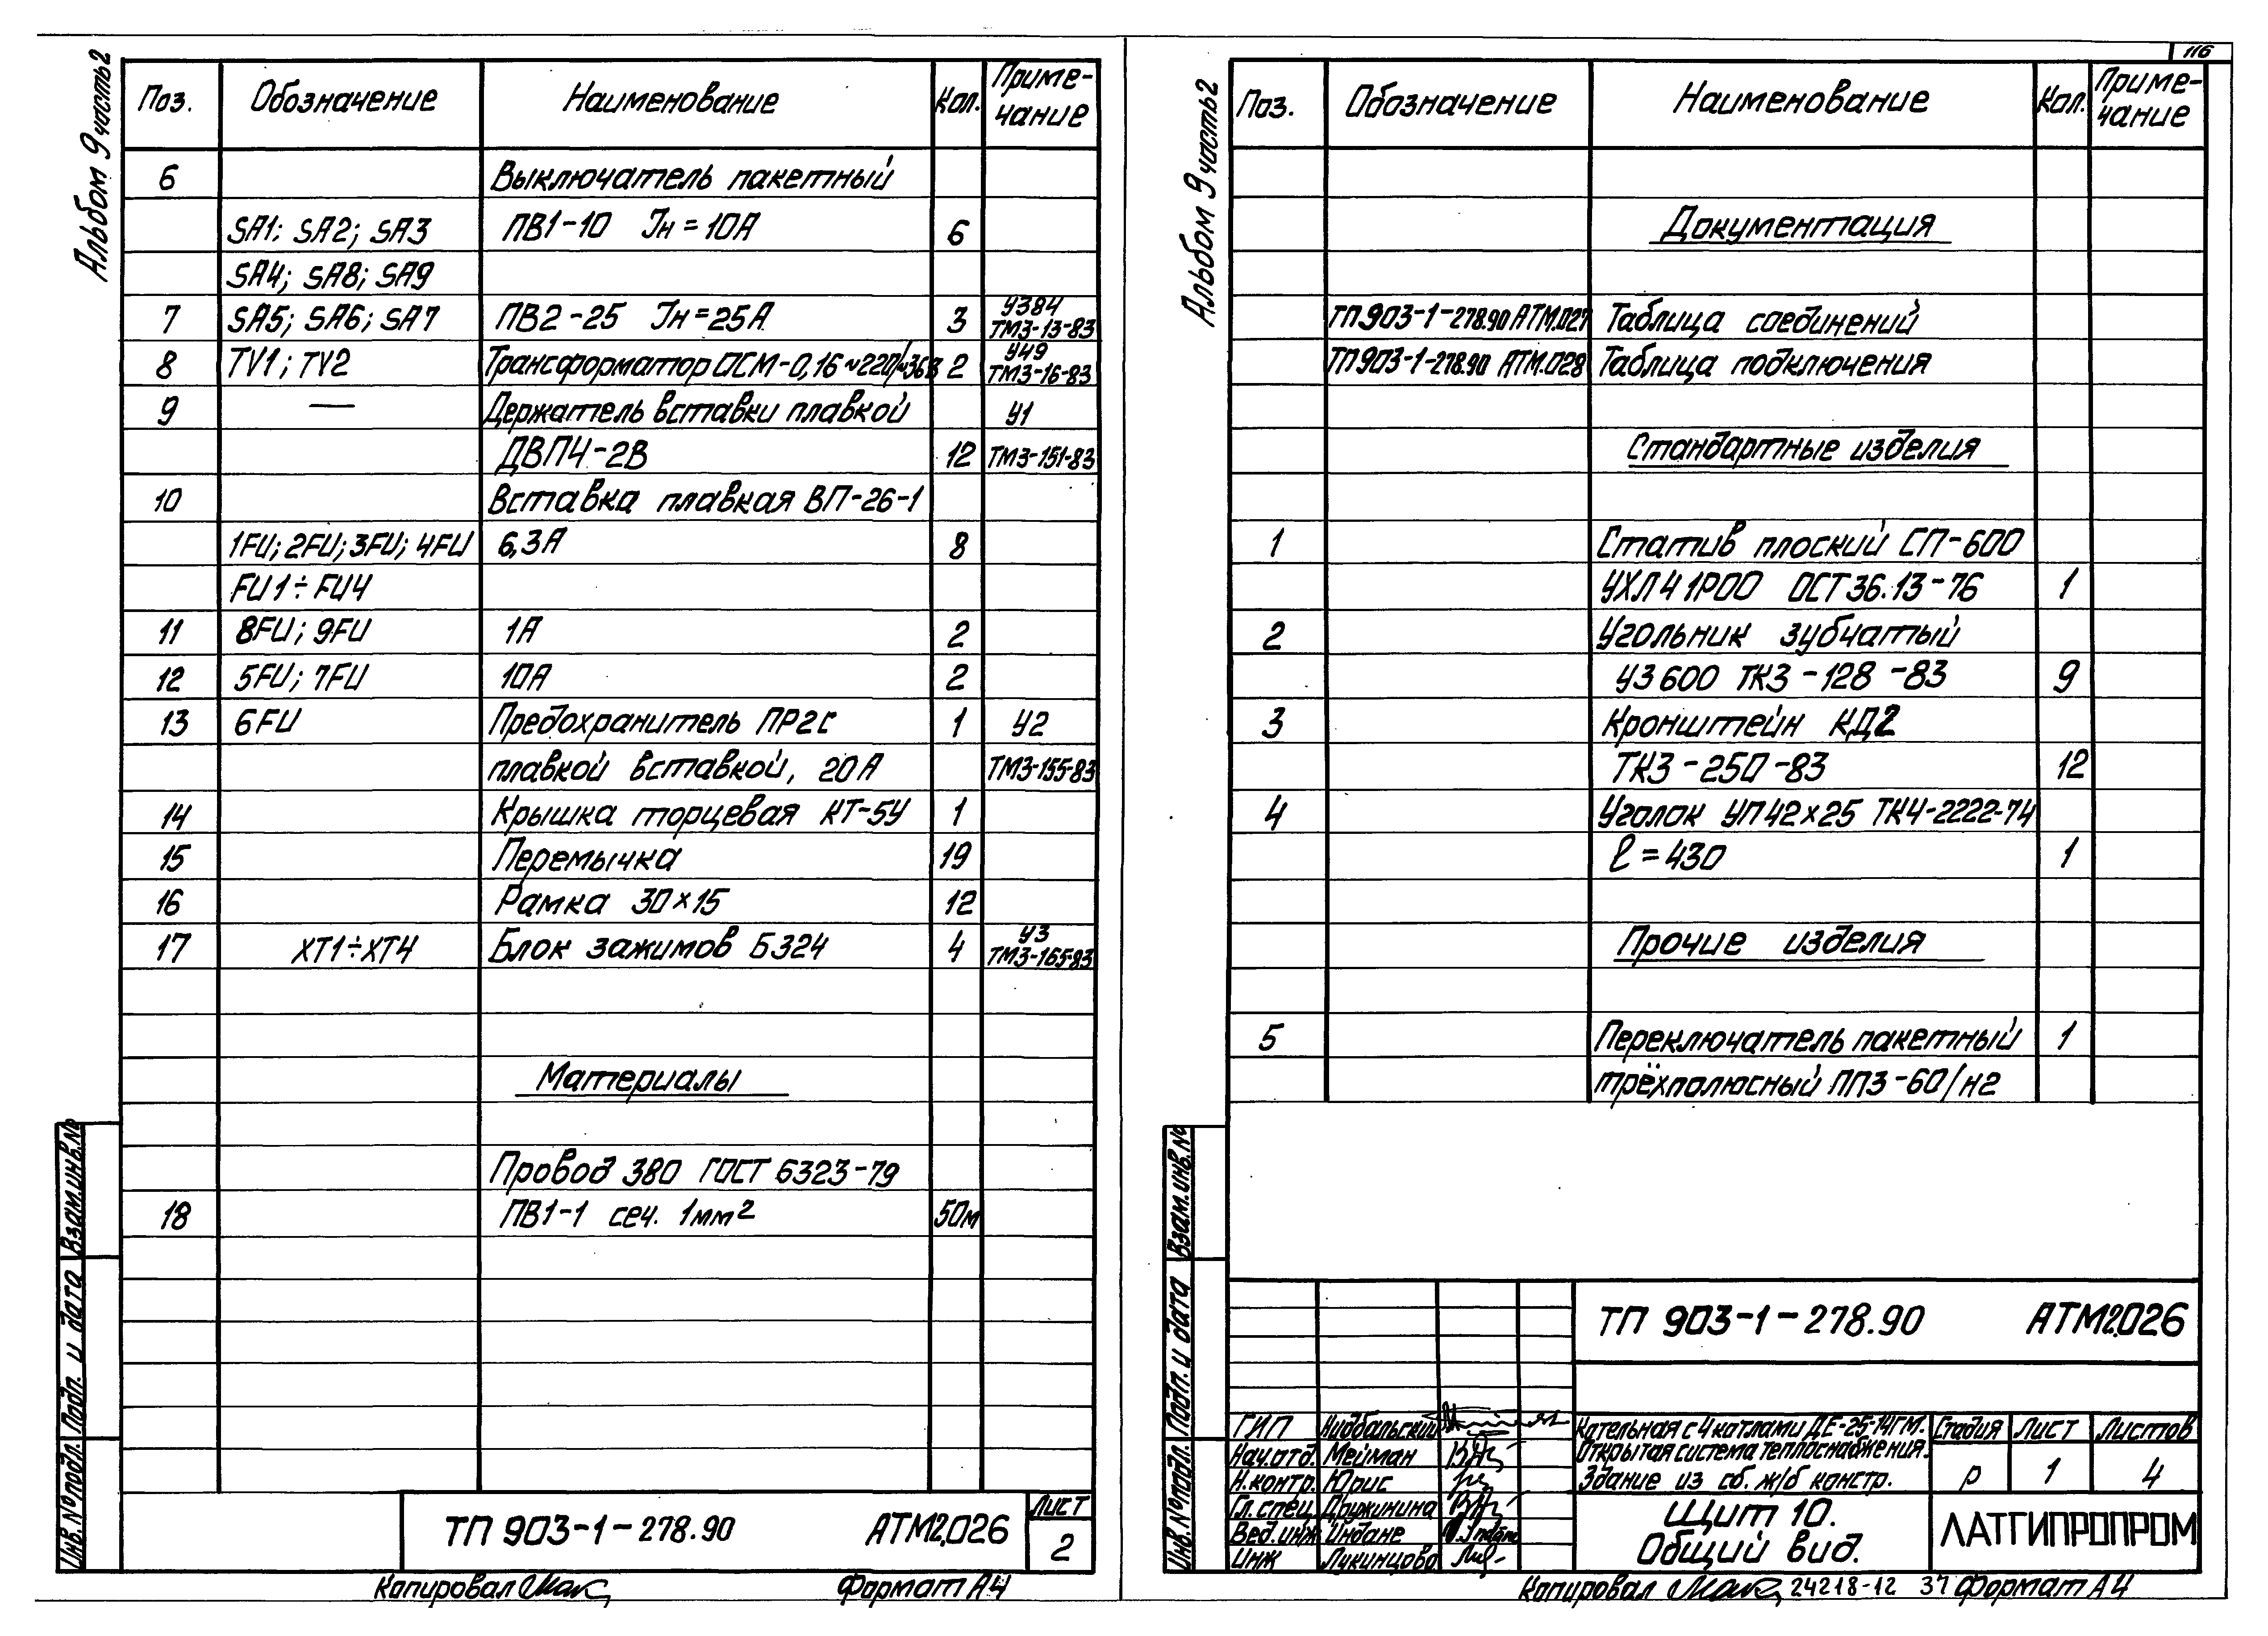 116
Альбом 9 часть 2
Поз. Обозначение Наименование Кол. Приме-
чание
6 Выключатель пакетный
SA1; SA2; SA3 ПВ1-10 Iн=10А 6
SA4; SA8; SA9
7 SA5; SA6; SA7 ПВ2-25 Iн=25А 3 У384
ТМ3-13-83
8 TV1; TV2 Трансформатор ОСМ-0,16 ~220/~36В 2 У49
ТМ3-16-83
9 — Держатель вставки плавкой У1
ДВП4-2В 12 ТМ3-151-83
10 Вставка плавкая ВП-26-1
1FU; 2FU; 3FU; 4FU 6,3А 8
FU1÷FU4
11 8FU; 9FU 1А 2
12 5FU; 7FU 10А 2
13 6FU Предохранитель ПР2с 1 У2
плавкой вставкой, 20А ТМ3-155-83
14 Крышка торцевая КТ-5У 1
15 Перемычка 19
16 Рамка 30×15 12
17 XT1÷XT4 Блок зажимов Б324 4 У3
ТМ3-165-83
Материалы
Провод 380 ГОСТ 6323-79
18 ПВ1-1 сеч. 1мм² 50м
Взам.инв.№
Подп. и дата
Инв.№подл.
ТП 903-1-278.90 АТМ2.026
Лист
2
Копировал
Формат А4
Альбом 9 часть 2
Поз. Обозначение Наименование Кол. Приме-
чание
Документация
ТП903-1-278.90 АТМ.027 Таблица соединений
ТП903-1-278.90 АТМ.028 Таблица подключения
Стандартные изделия
1 Статив плоский СП-600
УХЛ4 1Р00 ОСТ 36.13-76 1
2 Угольник зубчатый
УЗ600 ТК3-128-83 9
3 Кронштейн КД2
ТК3-250-83 12
4 Уголок УП42×25 ТК4-2222-74
ℓ=430 1
Прочие изделия
5 Переключатель пакетный 1
трёхполюсный ПП3-60/н2
Взам.инв.№
Подп. и дата
Инв.№подл.
ТП 903-1-278.90 АТМ2.026
ГИП Нидбальский
Нач.отд. Мейман
Н.контр. Юрис
Гл.спец. Дружинина
Вед.инж Индане
Инж Лукинцова
Котельная с 4 котлами ДЕ-25-14ГМ.
Открытая система теплоснабжения.
Здание из сб. ж/б констр.
Стадия Лист Листов
р 1 4
Щит 10.
Общий вид.
ЛАТГИПРОПРОМ
Копировал
24218-12 37 Формат А4